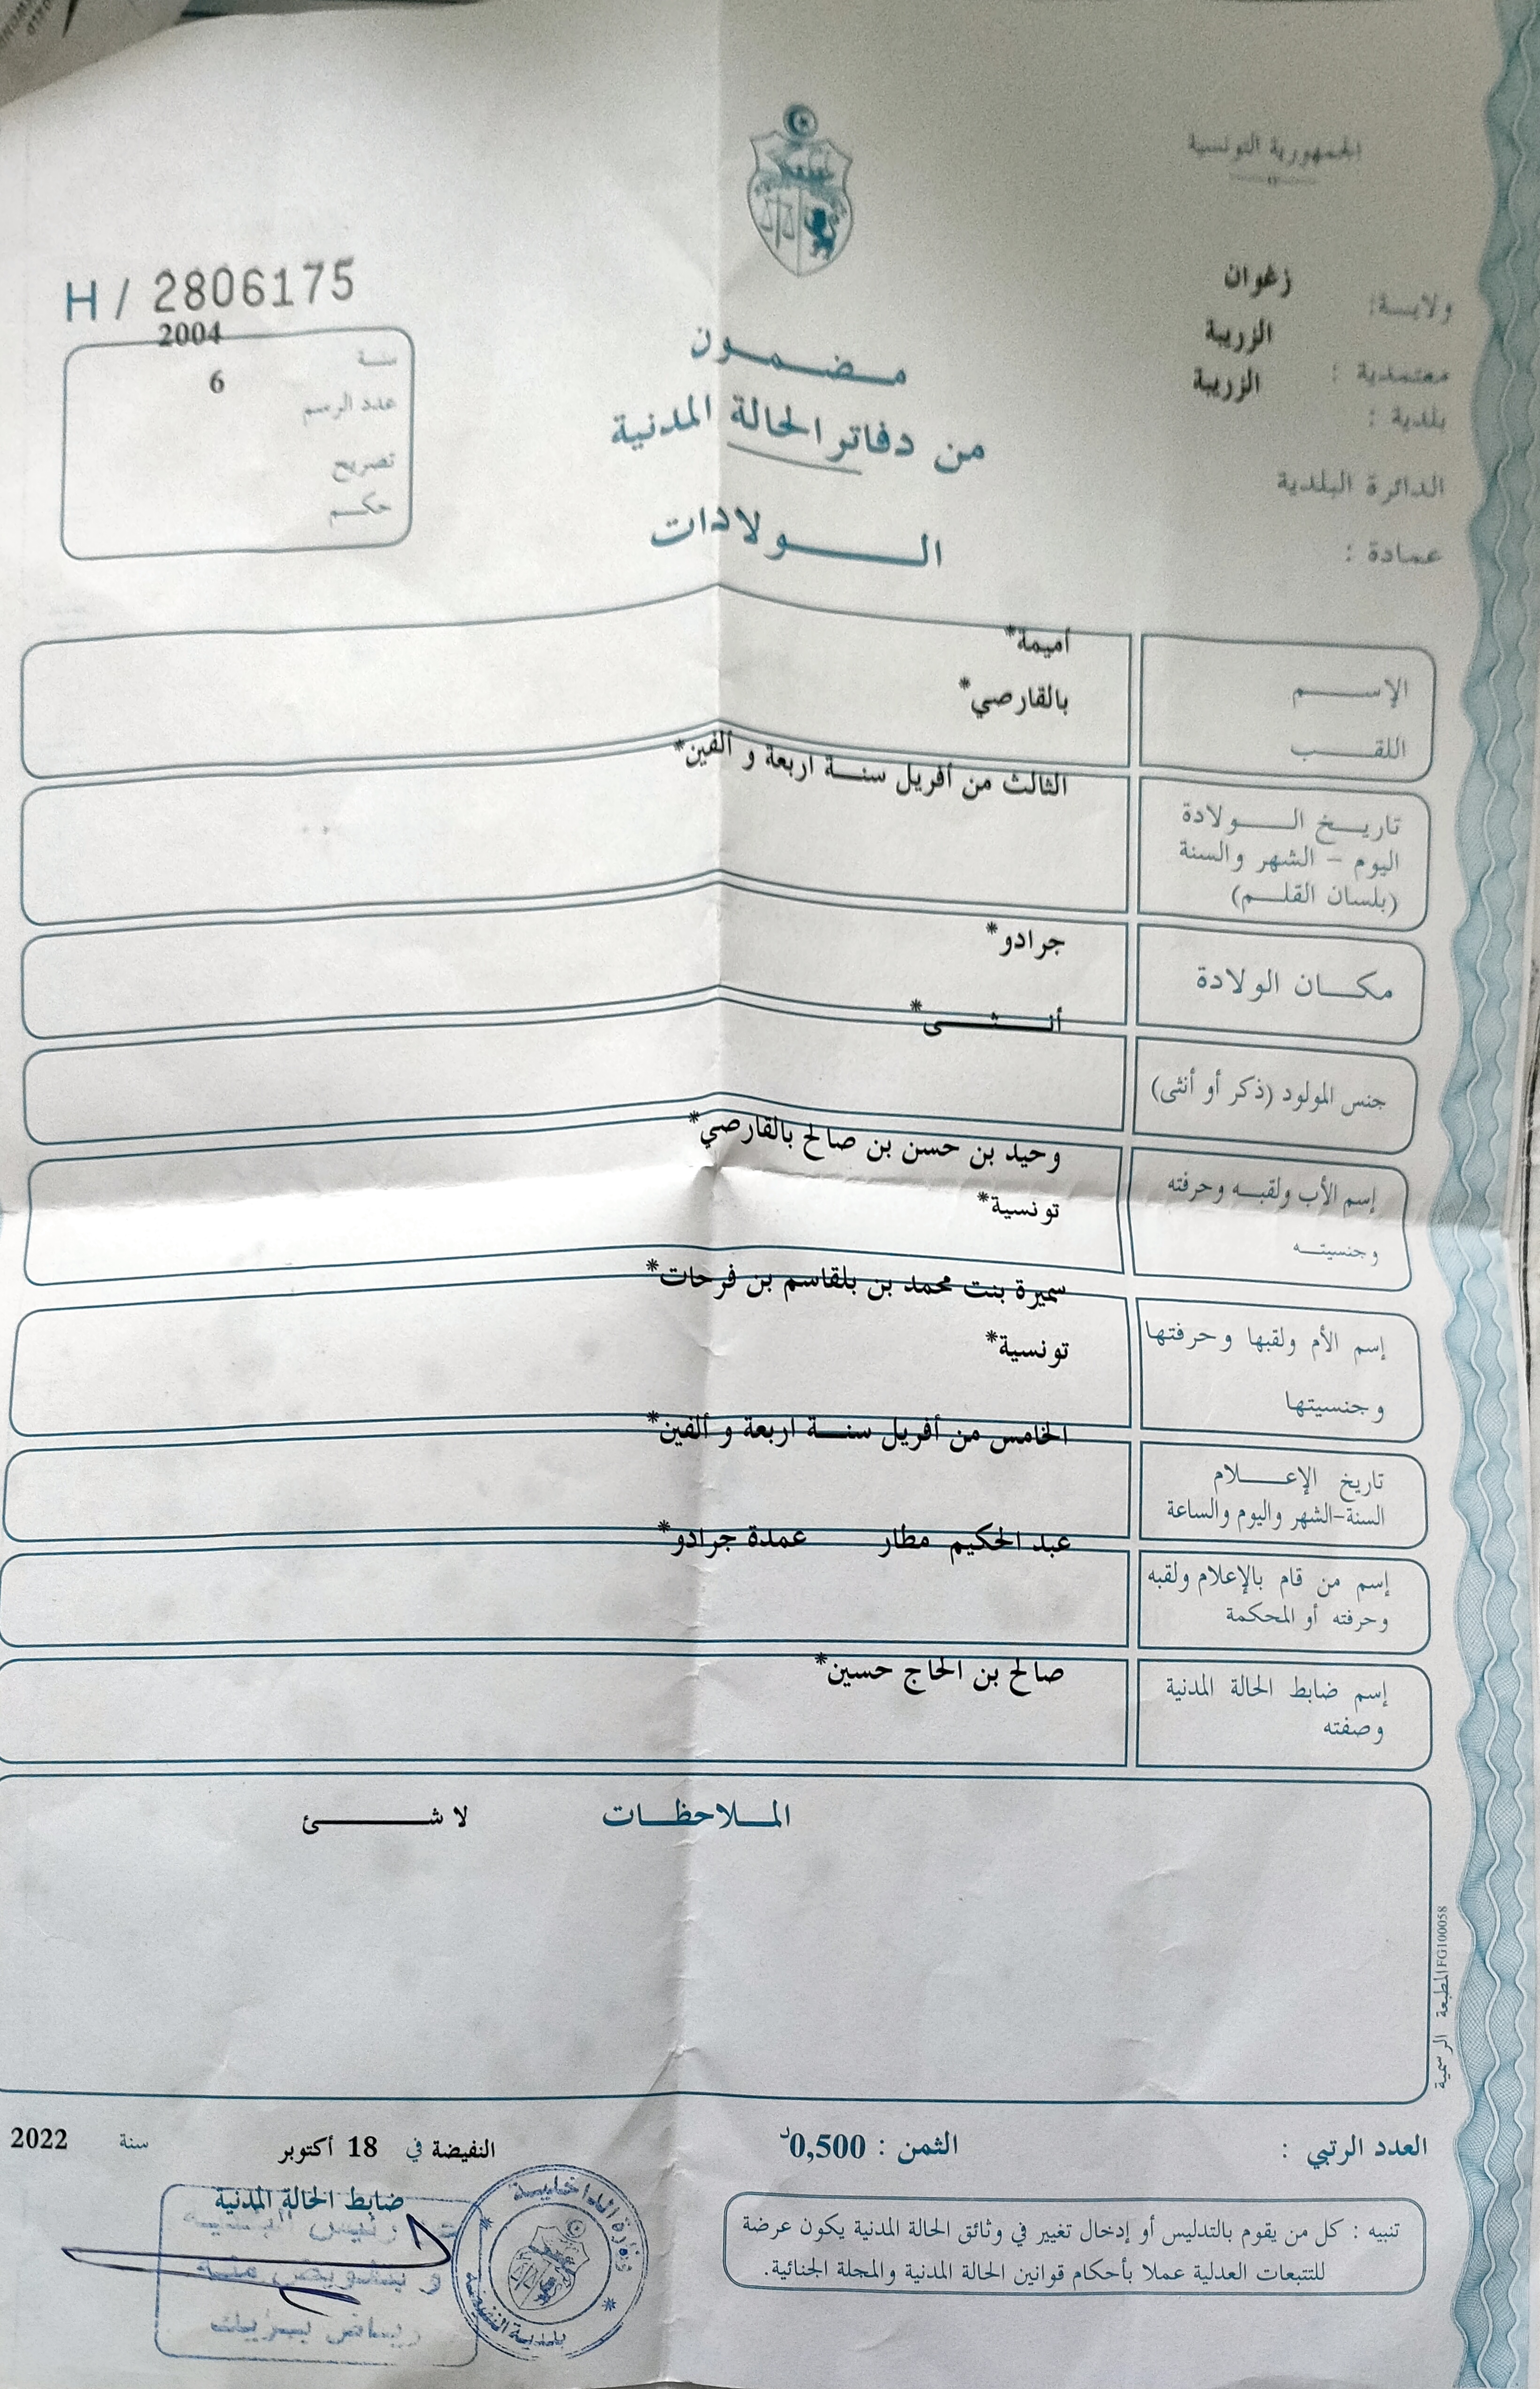 الجمهورية التونسية
ولاية: زغوان
معتمدية : الزريبة
بلدية : الزريبة
الدائرة البلدية
عمادة :
H / 2806175
سنة 2004
عدد الرسم 6
تصريح
حكم
مضمون
من دفاتر الحالة المدنية
الولادات
الإسم أميمة*
اللقب بالقارصي*
تاريخ الولادة الثالث من أفريل سنة اربعة و ألفين*
اليوم - الشهر والسنة
(بلسان القلم)
مكان الولادة جرادو*
جنس المولود (ذكر أو أنثى) أنثى*
إسم الأب ولقبه وحرفته وحيد بن حسن بن صالح بالقارصي*
وجنسيته تونسية*
إسم الأم ولقبها وحرفتها سميرة بنت محمد بن بلقاسم بن فرحات*
وجنسيتها تونسية*
تاريخ الإعلام الخامس من أفريل سنة اربعة و ألفين*
السنة-الشهر واليوم والساعة
إسم من قام بالإعلام ولقبه عبد الحكيم مطار عمدة جرادو*
وحرفته أو المحكمة
إسم ضابط الحالة المدنية صالح بن الحاج حسين*
وصفته
الملاحظات لا شئ
المطبعة الرسمية FG100058
العدد الرتبي :
الثمن : 0,500د
النفيضة في 18 أكتوبر سنة 2022
ضابط الحالة المدنية
رئيس البلدية
و بتفويض منه
رياض
وزارة الداخلية
بلدية النفيضة
تنبيه : كل من يقوم بالتدليس أو إدخال تغيير في وثائق الحالة المدنية يكون عرضة
للتتبعات العدلية عملا بأحكام قوانين الحالة المدنية والمجلة الجنائية.